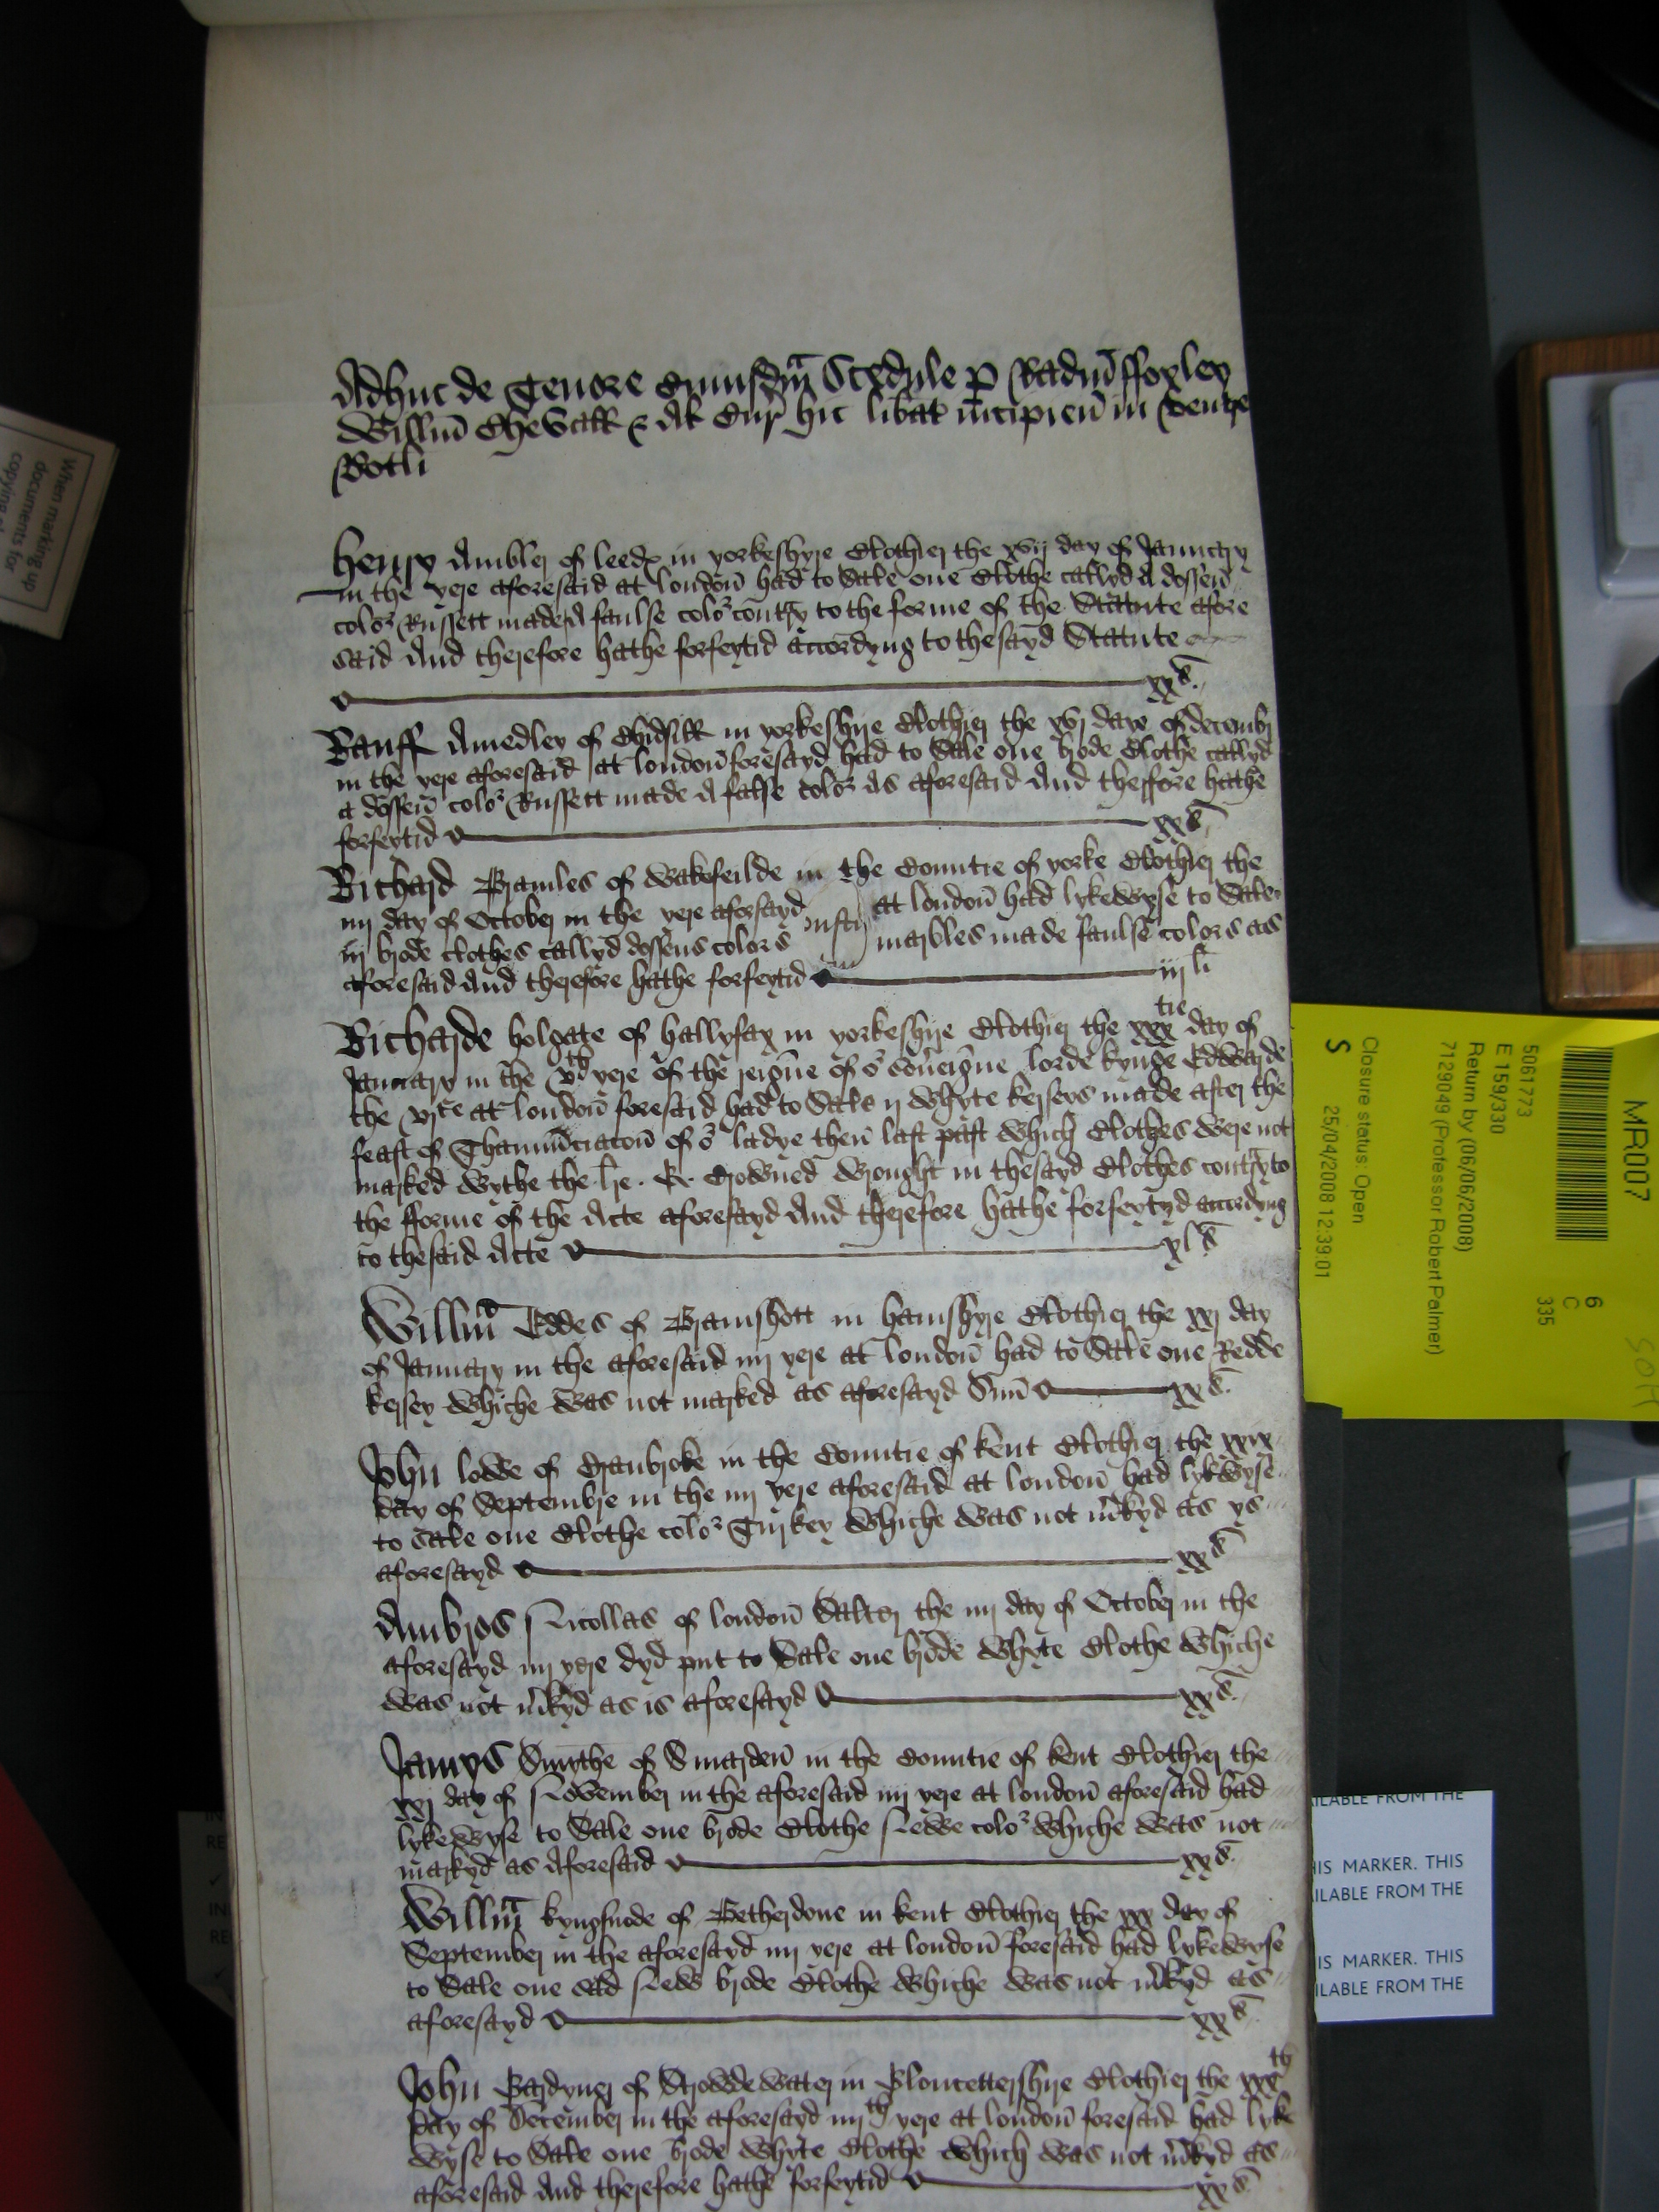 Adhuc de Tenore Cuiusdm Scedule p Radm ffoxley
Willm Chevall & Al Cur hic libat incipien in
Rotli
Henry Ambler of leedes in yorkeshyre Clothier the xvij day of January
in the yere aforesaid at london had to Sale one Clothe callyd A dossen
color Russett made A faulse color contry to the forme of the Statute afore
said And therefore hathe forfeytid accordyng to thesayd Statute
xxs.
Rauff Amedley of in yorkeshyre Clothier the xvj daye of decembr
in the yere aforesaid at london foresayd had to Sale one brode Clothe callyd
a dossen color Russett made A false color as aforesaid And therfore hathe
forfeytid xxs
Richard Bramles of wakefeilde in the Countie of yorke Clothier the
iiij day of October in the yere aforsayd at london had lykewyse to Sale
iij brode clothes callyd dossens colors marbles made faulse colors as
aforesaid And therefore hathe forfeytid iij li
Richarde holgate of hallyfax in yorkeshyre Clothier the xxx tie day of
January in the vth yere of the reigne of or soveigne lorde kynge Edwarde
the vjte at london foresaid had to Sale ij whyte kerseys made after the
feast of Thannunciacon of or ladye then last past which Clothes were not
marked wythe the lre . E . Crowned wrought in thesayd Clothes contry to
the fforme of the Acte aforesayd And therefore hathe forfeytyd accordyng
to thesaid Acte xls
Willm Eddes of Bramshott in hamshyre Clothier the xxj day
of January in the aforesaid iiij yere at london had to Sale one Redde
kersey whiche was not marked as aforesayd Sum xxs.
John lowe of Cranbroke in the Countie of kent Clothier the xxix
day of Septembre in the iiij yere aforesaid at london had lykwyse
to sale one Clothe color Turkey whiche was not mrkyd as ys
aforesayd xxs
Ambros Nicollas of london Salter the iiij day of October in the
aforesayd iiij yere dyd put to Sale one brode whyte Clothe whiche
was not mrkyd as is aforesayd xxs.
Jamys Smythe of Smarden in the Countie of kent Clothier the
xxj day of November in the aforesaid iiij yere at london aforesaid had
lykewyse to Sale one brode Clothe Newe color whiche was not
markyd as Aforesaid xxs.
Willm kyngsnode of Betherdone in kent Clothier the xxx day of
September in the aforesayd iiij yere at london foresaid had lykewyse
to Sale one sad New brode Clothe whiche was not mrkyd as
aforesayd xxs
John Gardyner of Strowdewater in Gloucettershyre Clothier the xxxth
day of December in the aforesayd iiijth yere at london foresaid had lyke
wyse to Sale one brode whyte Clothe which was not mrkyd as
aforesaid And therefore hathe forfeytid xxs
MR007
5061773
E 159/330
Return by (06/06/2008)
7129049 (Professor Robert Palmer)
6
C
335
Closure status: Open
S 25/04/2008 12:39:01
When marking up
documents for
ILABLE FROM THE
IS MARKER. THIS
ILABLE FROM THE
IS MARKER. THIS
ILABLE FROM THE